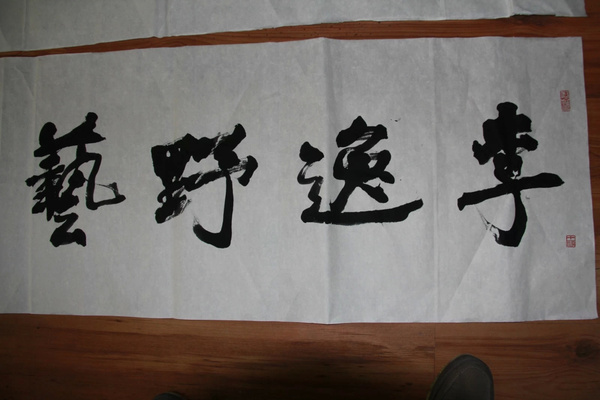 李逸野藝